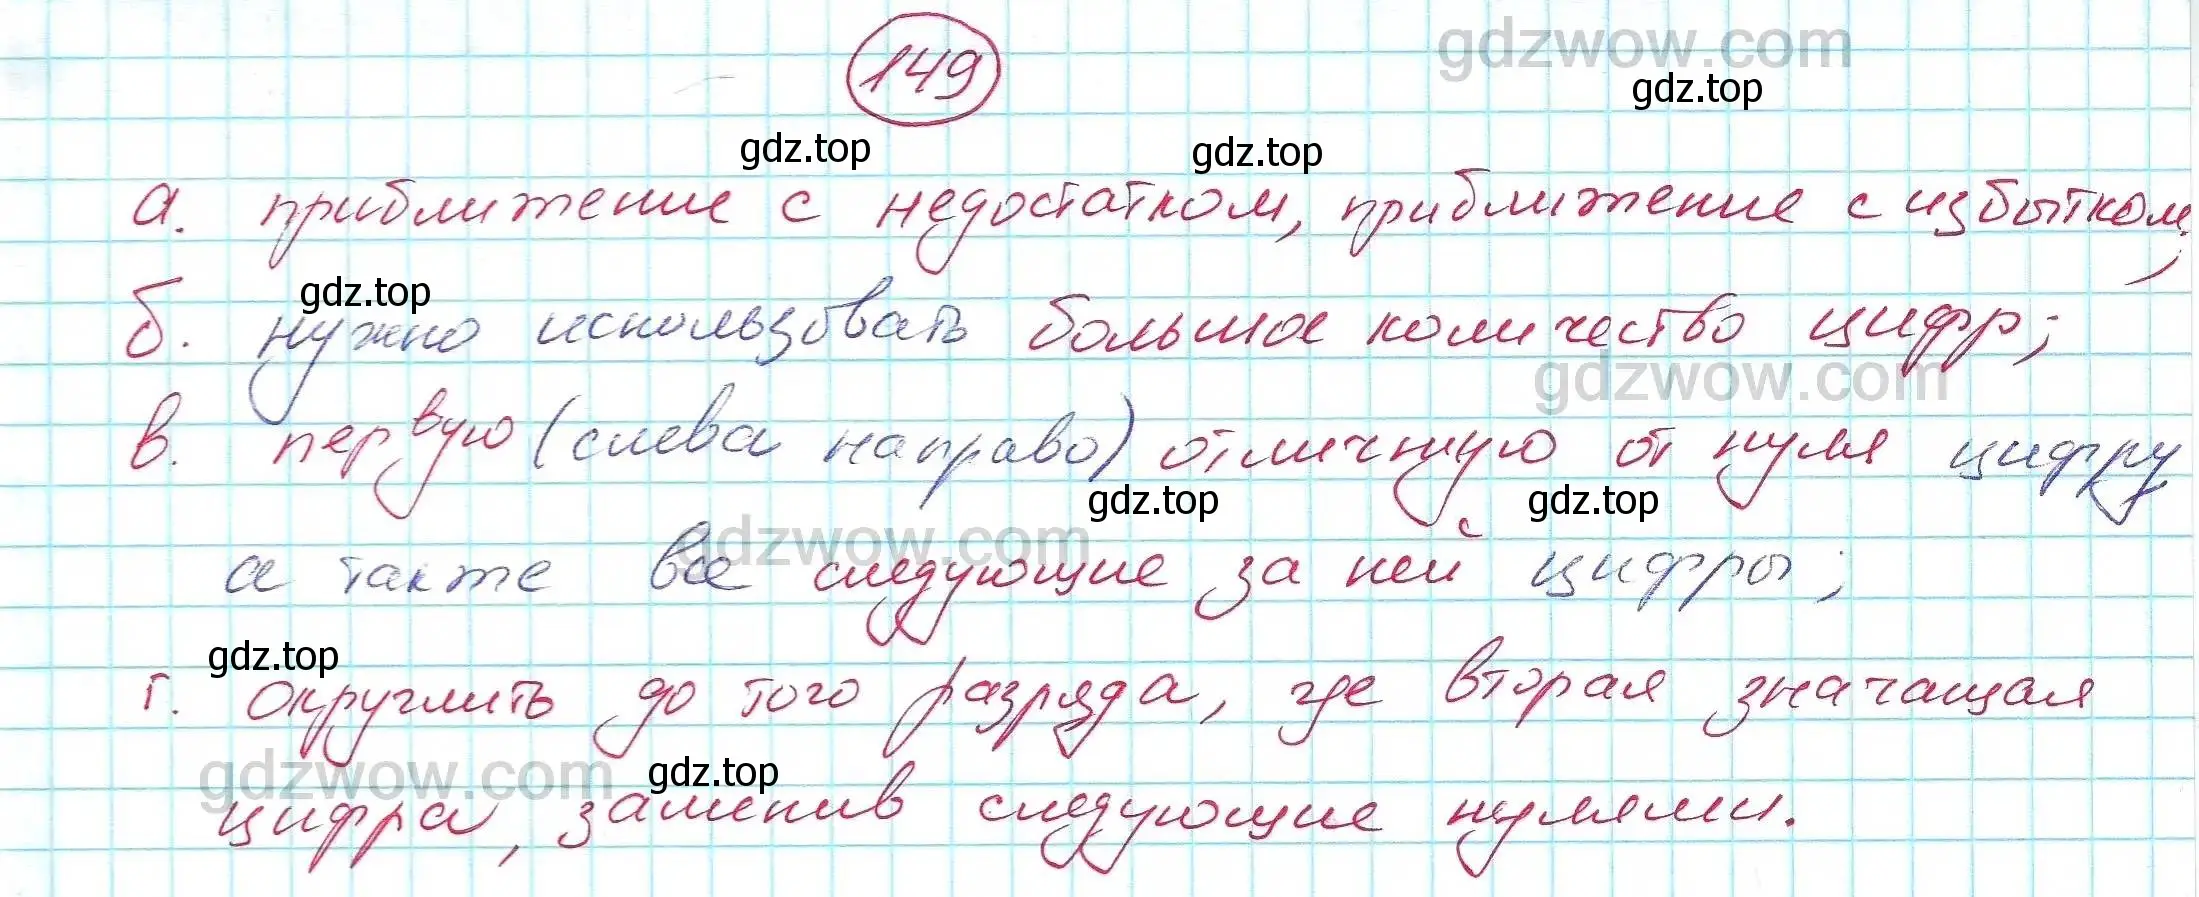 gdzwow.com
149
gdz.top
gdz.top gdz.top
а. приближение с недостатком, приближение с избытком;
gdz.top
б. нужно использовать большое количество цифр;
gdzwow.com
в. первую (слева направо) отличную от нуля цифру
gdz.top gdz.top
gdzwow.com
а также все следующие за ней цифры;
gdz.top
г. округлить до того разряда, где вторая значащая
gdzwow.com gdz.top
цифра, заменив следующие нулями.